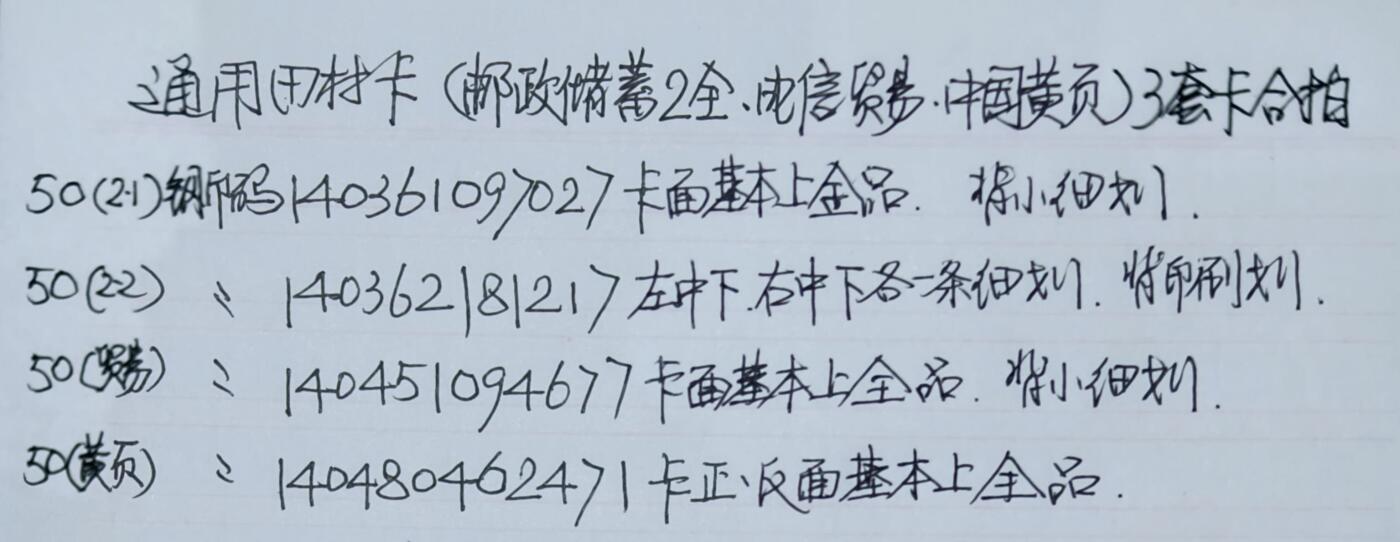 通用田村卡(邮政储蓄2全、电信贸易、中国黄页)3套卡合拍
50(2-1)钢印码140361097027卡面基本上全品. 背小细划.
50(2-2) 〃 140362181217左中下.右中下各一条细划. 背印刷划.
50(贸易) 〃 140451094677卡面基本上全品. 背小细划.
50(黄页) 〃 140480462471卡正、反面基本上全品.